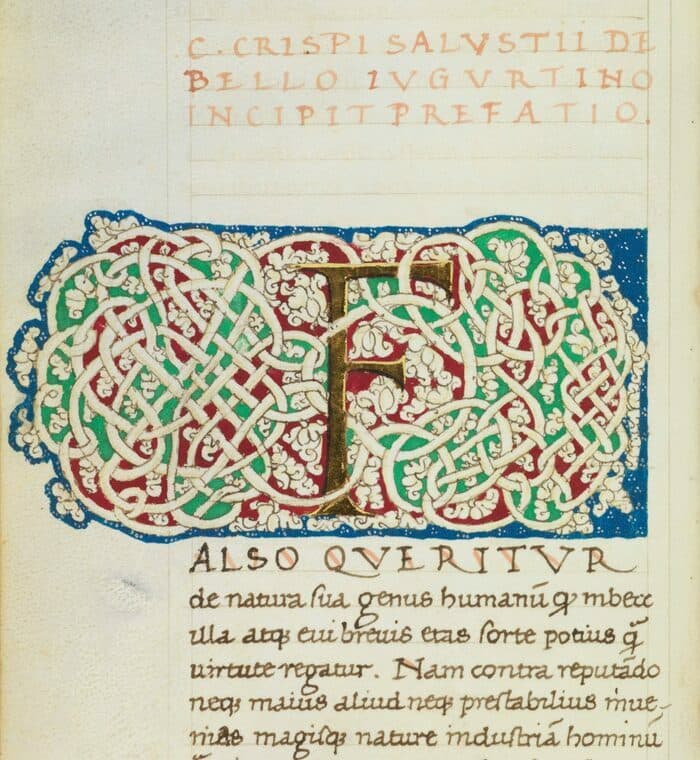 C. CRISPI SALVSTII DE
BELLO IVGVRTINO
INCIPIT PREFATIO.
F
ALSO QVERITVR
de natura sua genus humanū qꝫ mbecc
illa atqꝫ eui breuis etas sorte potius q̄
uirtute regatur. Nam contra reputādo
neqꝫ maius aliud neqꝫ prestabilius inue-
nias magisqꝫ nature industriā hominū